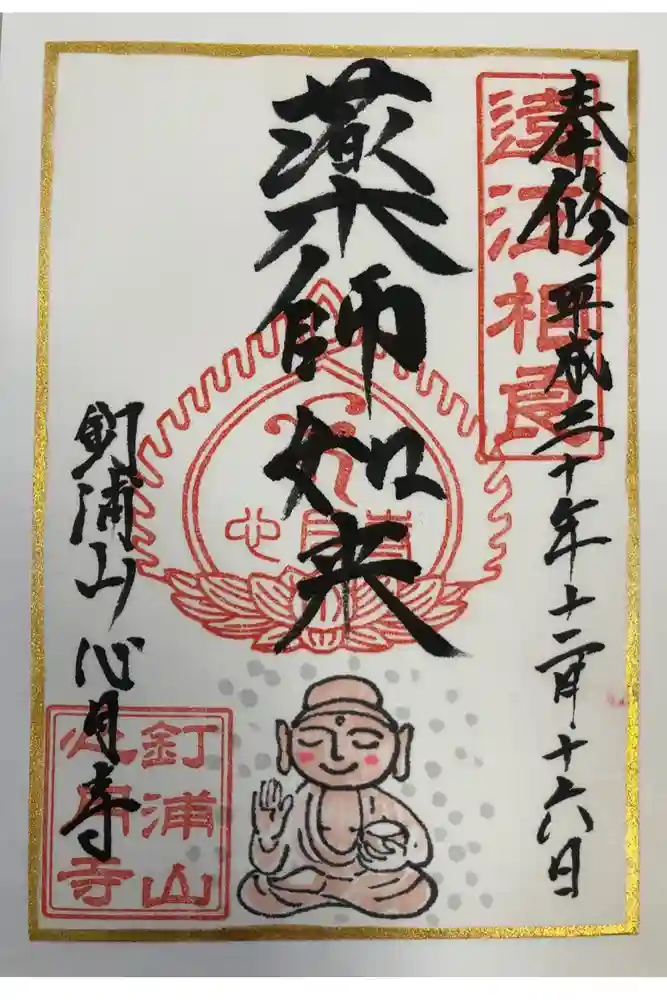 奉修 平成三十年十二月十六日
遠江相良
薬師如来
心月寺
釘浦山心月寺
釘浦山
心月寺